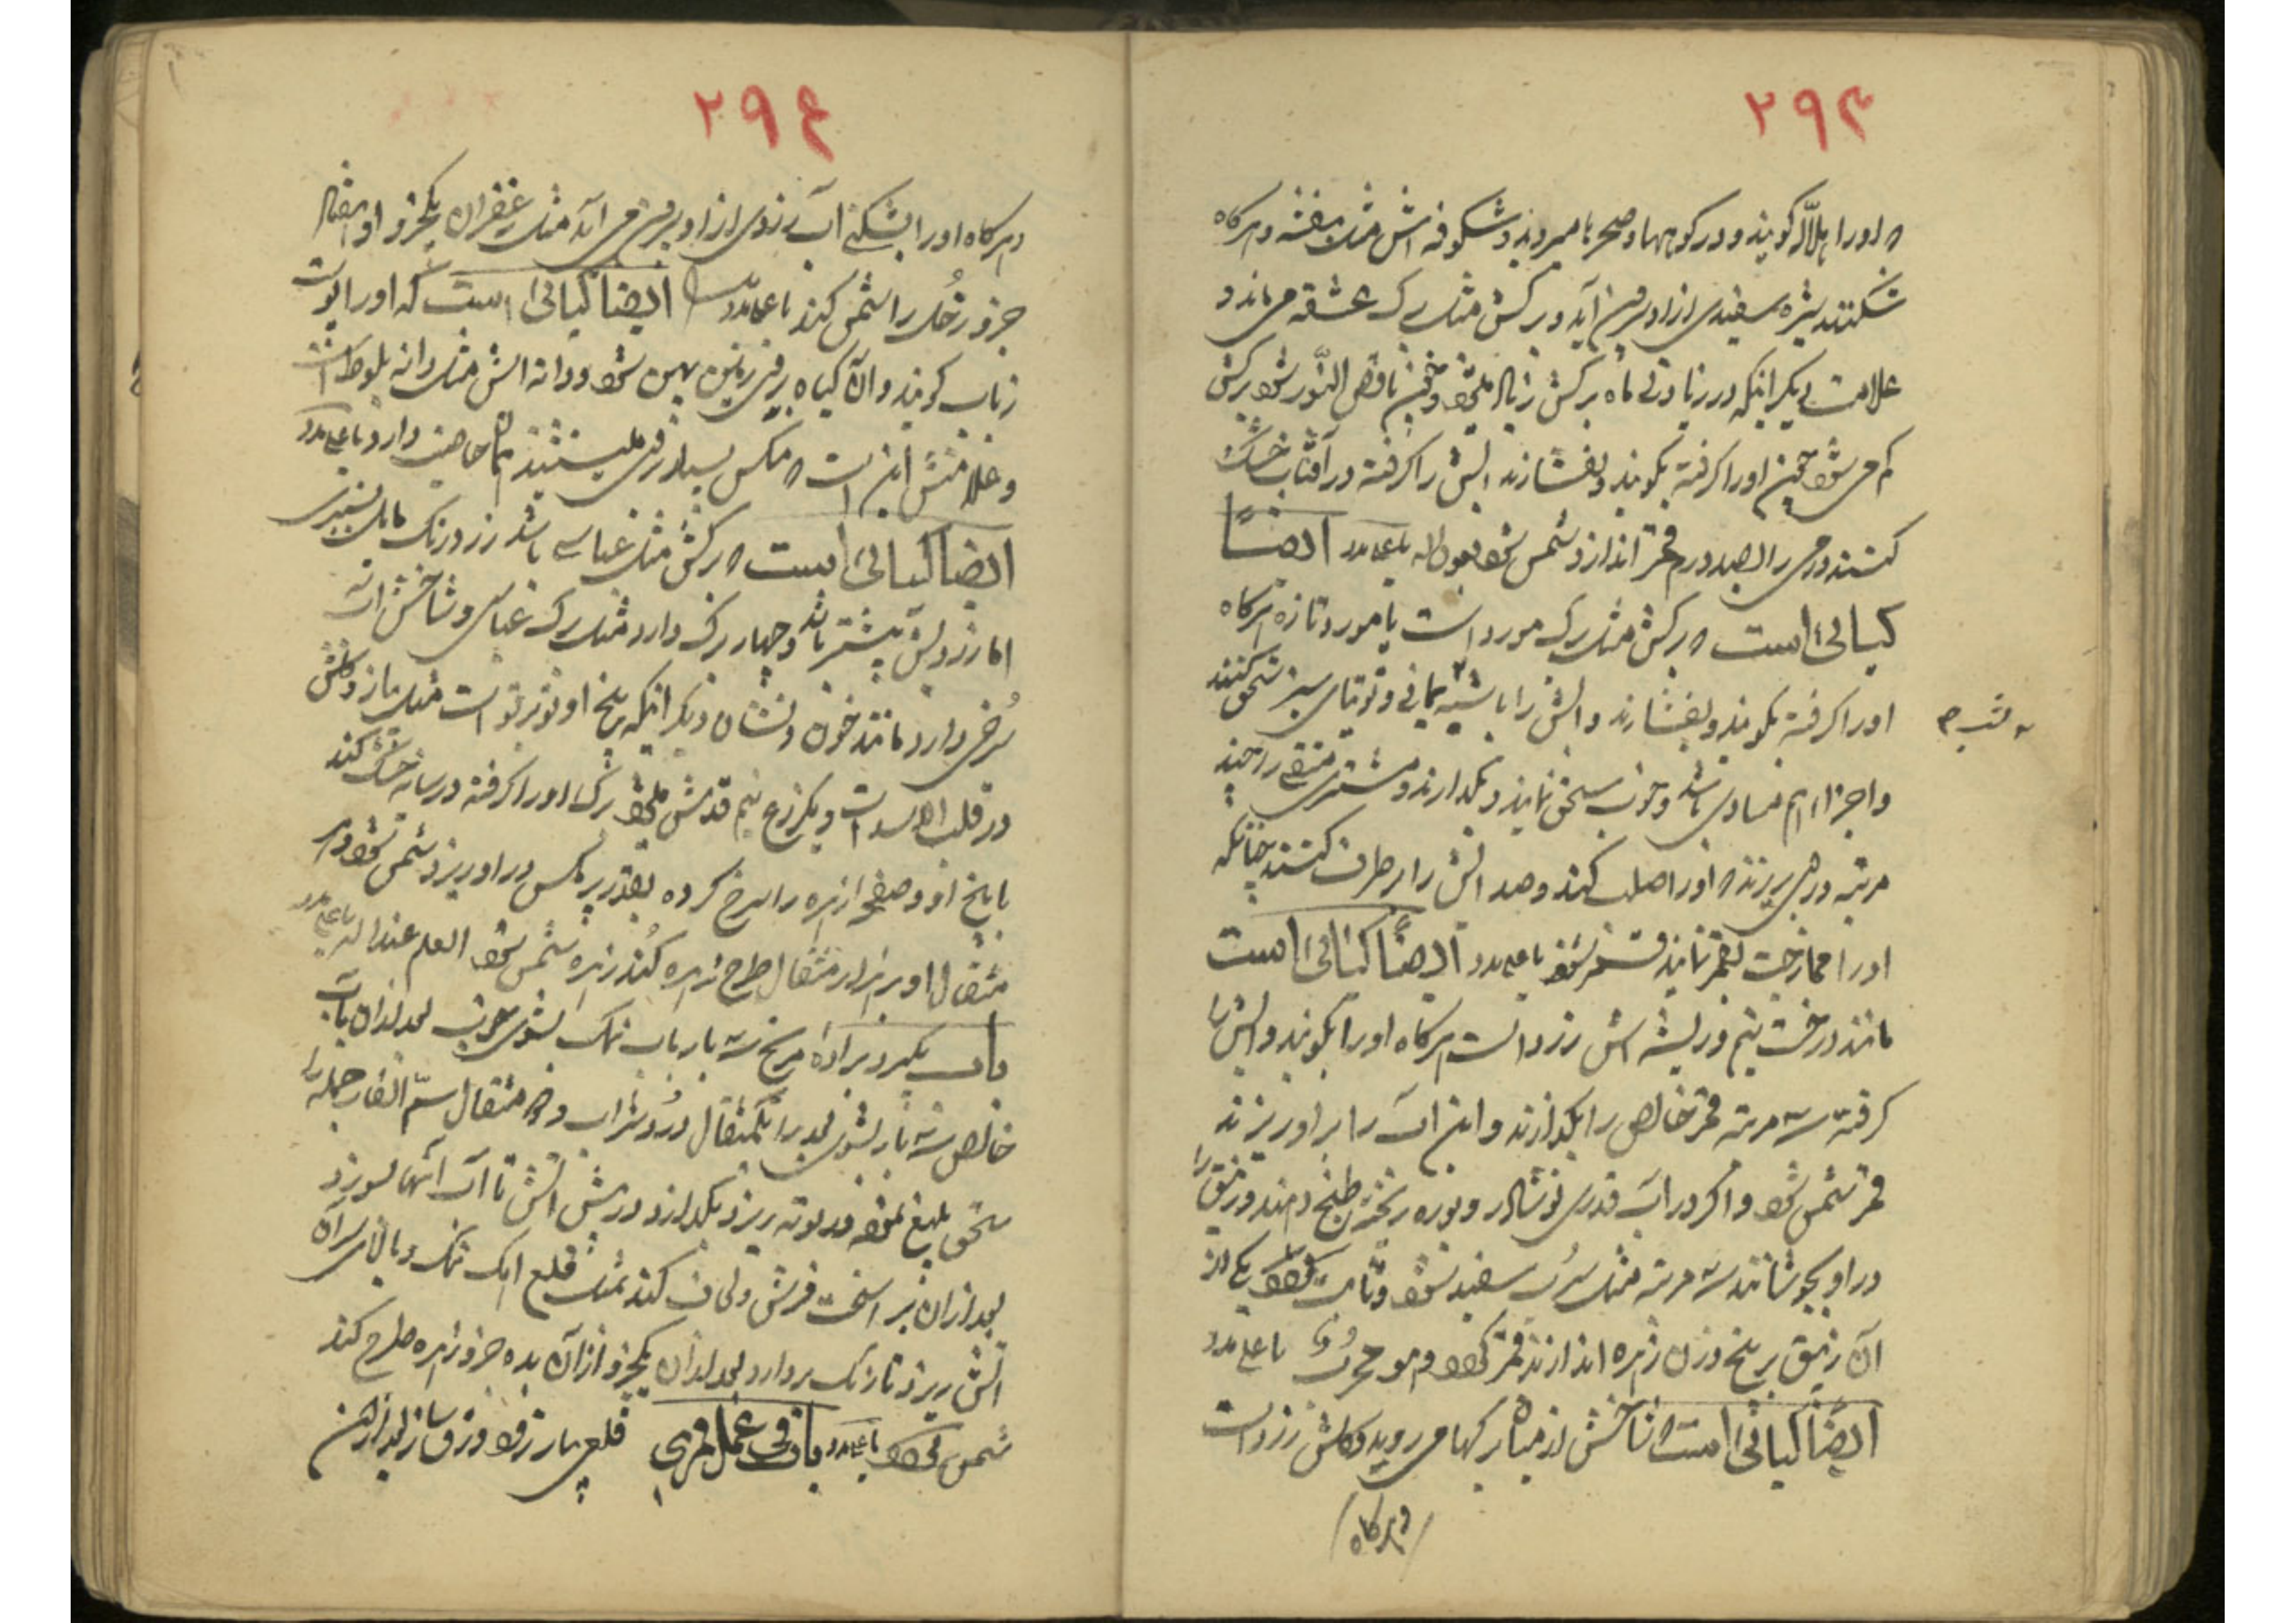 ۲۹۳
اورا هلال گویند و در کوهها و صحراها میروید و شکوفه اش مثل بنفشه و هرگاه
شکنند شیره سفیدی از او بیرون آید و برگش مثل برگ عشقه می ماند و
علامت دیگر آنکه در زیادتی ماه برگش زیاد میشود و چون ناقص النور شود برگش
کم می شود چون اورا گرفته بکوبند و بفشارند آبش را گرفته در آفتاب خشک
کنند درمی را بصد درم قمر اندازد شمس شود بعون الله یا علی مدد ایضاً
گیاهی است که برگش مثل برگ مورد است یا مورد تازه هرگاه
اورا گرفته بکوبند و بفشارند و آبش را با شب یمانی و توتیای سبز سحق کنند
و اجزاء هم مساوی باشد و خوب سحق نمایند و بگدازند و مشتری منقی را چند
مرتبه در وی ریزند اورا صلب کند و صدایش را برطرف کند چنانکه
اورا ممازجت بقمر نمایند قمر شود یا علی مدد ایضاً گیاهی است
مانند درخت و ریشه اش زرد است هرگاه اورا بکوبند و آبش را
گرفته سه مرتبه قمر خالص را بگدازند و این آب را بر او ریزند
قمر شمس شود و اگر در آب قدری نوشادر و بوره ریخته طبخ دهند و زیبق را
در او بجوشانند سه مرتبه مثل سرب سفید شود و ثابت گردد یکی از
آن زیبق بر پنج وزن زهره اندازند قمر گردد و هو مجرب یا علی مدد
ایضاً گیاهی است شاخش از میان برگها می روید و گلش زرد است
وهرگاه
۲۹۴
وهرگاه اورا بشکنی آب زردی از او بیرون می آید مثل زعفران یکجزو او هفتاد
جزو زحل را شمس کند یا علی مدد ایضا گیاهی است که اورا
گویند و آن گیاه بر روی زمین پهن شود و دانه اش مثل دانه بلوط است
و علامتش این است که مگس بسیار بر روی می نشیند خاصیت دارد یا علی مدد
ایضا گیاهی است که برگش مثل عباسی باشد زرد رنگ مایل بسبزی
اما زردیش بیشتر باشد و چهار برگ دارد مثل برگ عباسی و شاخش
سرخی دارد مانند خون و نشان دیگر آنکه بیخ او تو بر تو است مثل پیاز و گلش
در قلب الاسد است و یکذرع نیم قدش میشود برگ اورا گرفته در سایه خشک کند
با بیخ او و صفحه از زهره را سرخ کرده بقدر پر مگس در او ریزد شمس شود و هر
مثقال او بر هزار مثقال طرح زهره کند زهره شمس شود العلم عند الله یا علی مدد
باب بگیرد براده مریخ سه بار باب نمک بشوی خوب بعد از آن بآب
خالص سه بار بشوی بعد براده یکمثقال درد شراب و مثقال سم الفار جمله را
سحق بلیغ نموده در بوته ریزد بگدازد در پیش آتش تا آب آنها بسوزد
بعد از آن فرش و لحاف کند بمثل قلع آبک نمک و بالای سر آن
آتش ریزد تا رنگ بردارد بعد از آن یکجزو از آن بده جزو زهره طرح کند
شمس گردد یا علی مدد باب فی عمل قمری قلعی بیار و ورق ساز بعد از این